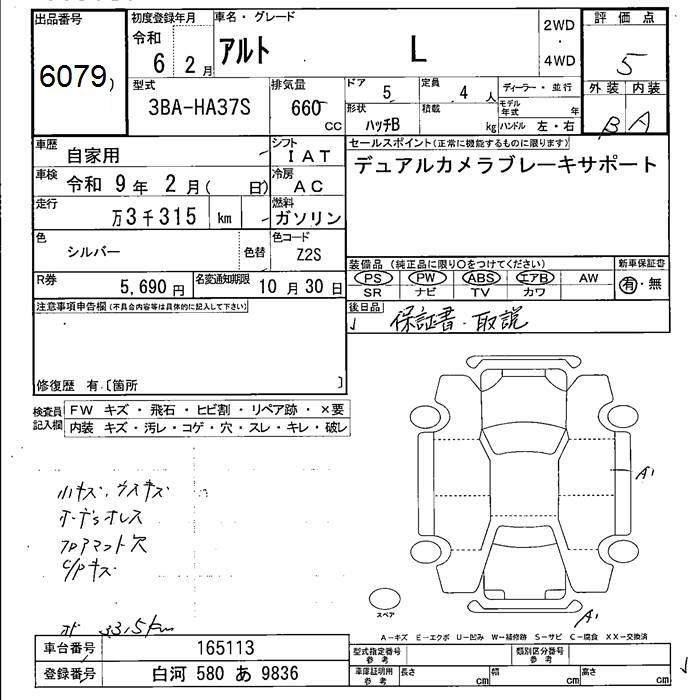 出品番号 初度登録年月 車名・グレード 2WD 評価点
6079 令和 6 2月 アルト L ・ 4WD 5
型式 排気量 ドア 5 定員 4 人 ディーラー・並行 外装 内装
3BA-HA37S 660 cc 形状 ハッチB 積載 kg モデル年式 年 ハンドル 左・右 B A
車歴 自家用 シフト IAT セールスポイント(正常に機能するものに限ります)
車検 令和 9年 2月( 日) 冷房 AC デュアルカメラブレーキサポート
走行 万3千315 km 燃料 ガソリン
色 シルバー 色替 色コード Z2S
装備品 (純正品に限り○をつけてください) 新車保証書
R券 5,690円 名変通知期限 10月30日 PS PW ABS エアB AW 有・無
SR ナビ TV カワ
注意事項申告欄(不具合内容等は具体的に記入して下さい) 後日品
保証書・取説
修復歴 有〔箇所 〕
検査員記入欄 FW キズ・飛石・ヒビ割・リペア跡・×要
内装 キズ・汚レ・コゲ・穴・スレ・キレ・破レ
A1
小キズ、ウスキズ
オーデオレス
フロアマット穴
C/Pキズ
スペア
A1
33.5km
A−キズ E−エクボ U−凹み W−補修跡 S−サビ C−腐食 XX−交換済
車台番号 165113 型式指定番号 参考 類別区分番号 参考
登録番号 白河 580 あ 9836 車庫証明用 参考 長さ cm 幅 cm 高さ cm